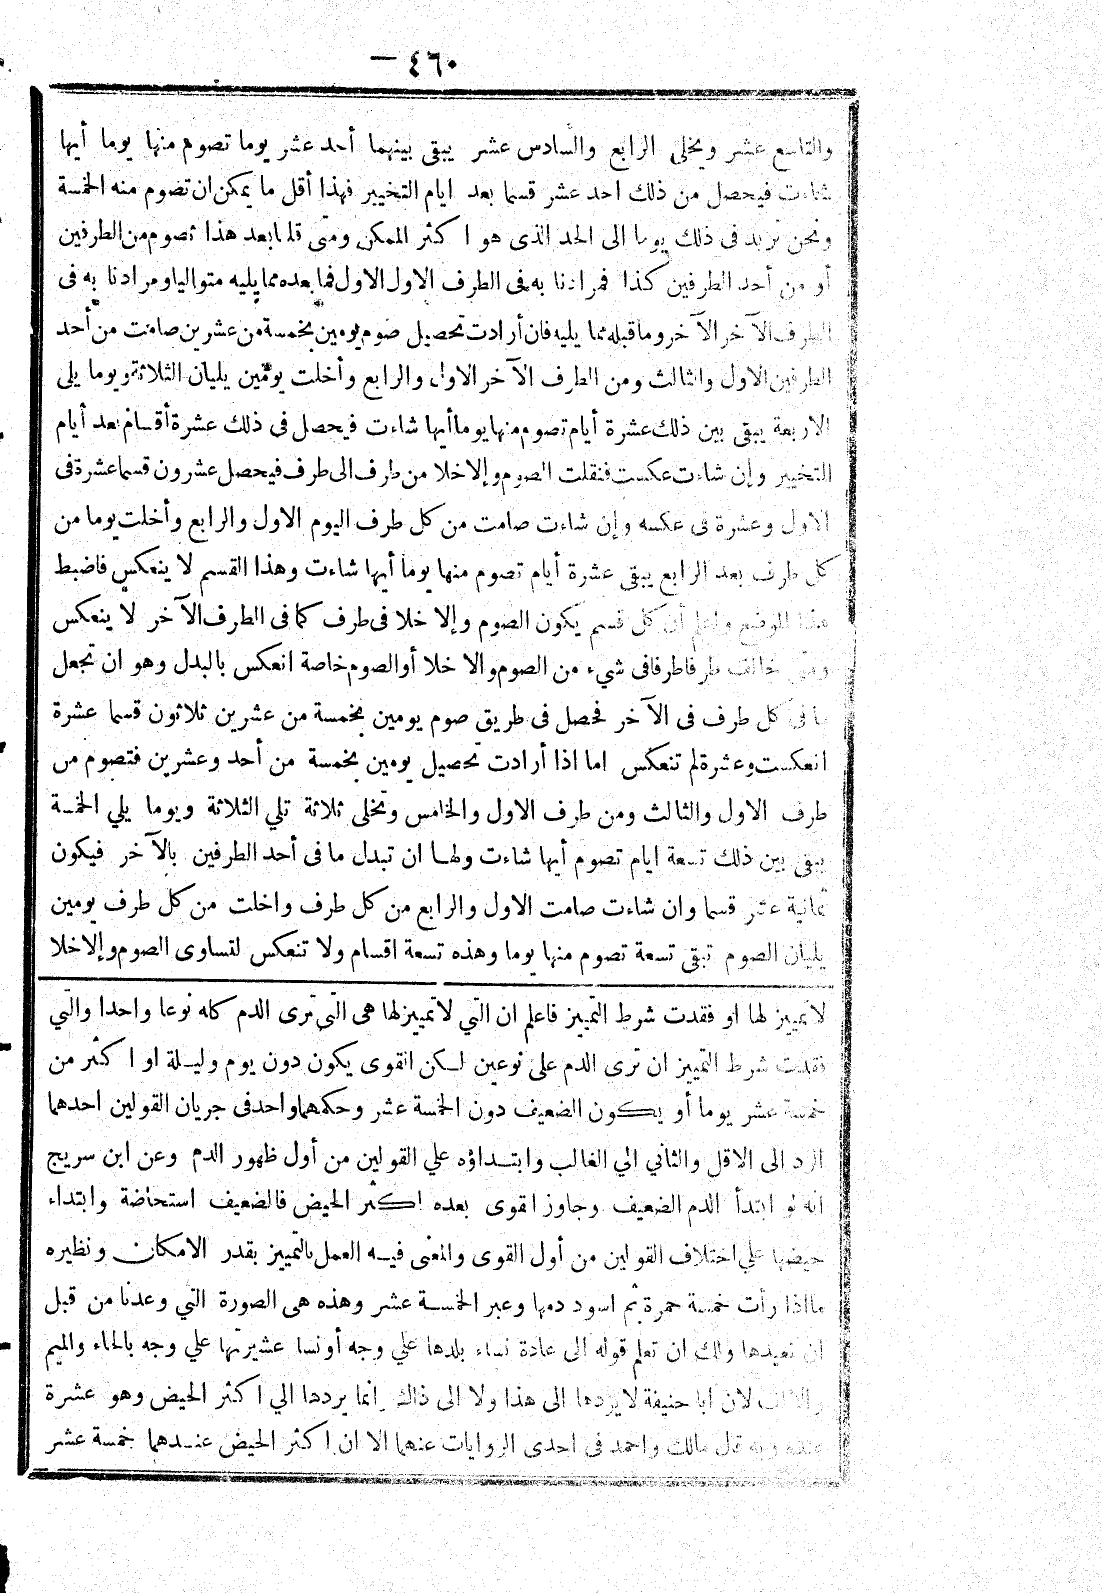 — ٤٦٠
والتاسع عشر ويخلى الرابع والسادس عشر يبقى بينهما أحد عشر يوما تصوم منها يوما أيها
شاءت فيحصل من ذلك احد عشر قسما بعد ايام التخيير فهذا أقل ما يمكن ان تصوم منه الخمسة
ونحن نزيد فى ذلك يوما الى الحد الذى هو اكثر الممكن ومتى قلنا بعد هذا تصوم من الطرفين
أو من أحد الطرفين كذا فمرادنا به فى الطرف الاول الاول فما بعده مما يليه متواليا ومرادنا به فى
الطرف الآخر الآخر وما قبله مما يليه فان أرادت تحصيل صوم يومين بخمسة من عشرين صامت من أحد
الطرفين الاول والثالث ومن الطرف الآخر الاول والرابع وأخلت يومين يليان الثلاثة ويوما يلى
الاربعة يبقى بين ذلك عشرة أيام تصوم منها يوما أيها شاءت فيحصل فى ذلك عشرة أقسام بعد أيام
التخيير وإن شاءت عكست فنقلت الصوم وإلاخلا من طرف الى طرف فيحصل عشرون قسما عشرة فى
الاول وعشرة فى عكسه وإن شاءت صامت من كل طرف اليوم الاول والرابع وأخلت يوما من
كل طرف بعد الرابع يبقى عشرة أيام تصوم منها يوما أيها شاءت وهذا القسم لا ينعكس فاضبط
هذا الموضع واعلم أن كل قسم يكون الصوم وإلا خلا فى طرف كما فى الطرف الآخر لا ينعكس
ومتى خالف طرفا طرفا فى شيء من الصوم والا خلا أو الصوم خاصة انعكس بالبدل وهو ان تجعل
ما فى كل طرف فى الآخر فحصل فى طريق صوم يومين بخمسة من عشرين ثلاثون قسما عشرة
انعكست وعشرة لم تنعكس اما اذا أرادت تحصيل يومين بخمسة من أحد وعشرين فتصوم من
طرف الاول والثالث ومن طرف الاول والخامس وتخلى ثلاثة تلي الثلاثة ويوما يلي الخمسة
يبقى بين ذلك تسعة ايام تصوم أيها شاءت ولها ان تبدل ما فى أحد الطرفين بالآخر فيكون
ثمانية عشر قسما وان شاءت صامت الاول والرابع من كل طرف واخلت من كل طرف يومين
يليان الصوم تبقى تسعة تصوم منها يوما وهذه تسعة اقسام ولا تنعكس لتساوى الصوم وإلاخلا
لا تمييز لها او فقدت شرط التمييز فاعلم ان التي لا تمييز لها هى التي ترى الدم كله نوعا واحدا والتي
فقدت شرط التمييز ان ترى الدم على نوعين لكن القوى يكون دون يوم وليلة او اكثر من
خمسة عشر يوما أو يكون الضعيف دون الخمسة عشر وحكمهما واحد فى جريان القولين احدهما
الرد الى الاقل والثاني الي الغالب وابتداؤه علي القولين من أول ظهور الدم وعن ابن سريج
انه لو ابتدأ الدم الضعيف وجاوز القوى بعده اكثر الحيض فالضعيف استحاضة وابتداء
حيضها علي اختلاف القولين من أول القوى والمعنى فيه العمل بالتمييز بقدر الامكان ونظيره
ما اذا رأت خمسة حمرة ثم اسود دمها وعبر الخمسة عشر وهذه هى الصورة التي وعدنا من قبل
ان نعيدها ولك ان تعلم قوله الى عادة نساء بلدها علي وجه أو نسا عشيرتها علي وجه بالحاء والميم
والالف لان أبا حنيفة لا يردها الى هذا ولا الى ذاك إنما يردها الي اكثر الحيض وهو عشرة
عنده وبه قال مالك واحمد فى احدى الروايات عنهما الا ان اكثر الحيض عندهما خمسة عشر